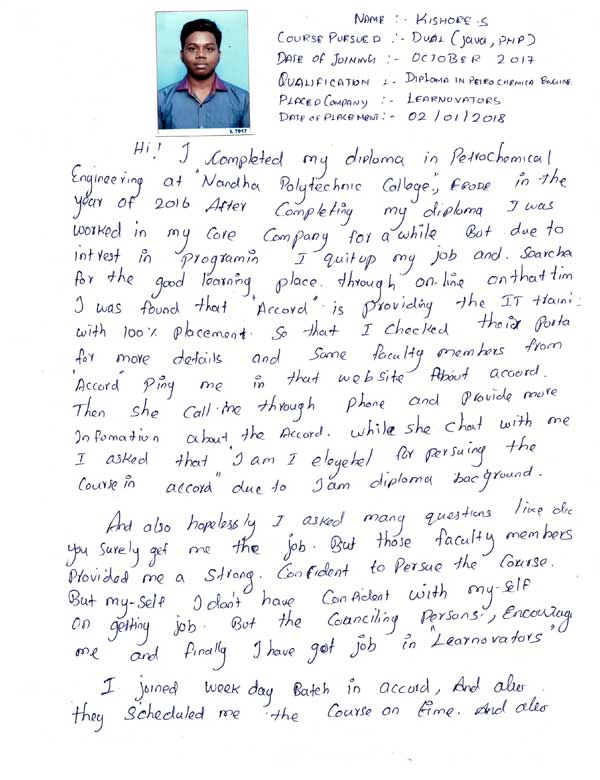 NAME :- KISHORE.S
COURSE PURSUED :- DUAL (Java, PHP)
DATE OF JOINING :- OCTOBER 2017
QUALIFICATION :- DIPLOMA IN PETROCHEMICA ENGINE
PLACED COMPANY :- LEARNOVATORS
DATE OF PLACEMENT :- 02/01/2018
L 7917
Hi! I Completed my diploma in Petrochemical
Engineering at "Nandha Polytechnic College", ERODE in the
year of 2016 After Completing my diploma I was
worked in my Core Company for a while But due to
intrest in programin I quitup my job and. Soarcha
for the good learning place. through on-line onthattim
I was found that "Accord" is providing the IT traini
with 100% placement. So that I checked their Porta
for more details and Some faculty members from
"Accord" Ping me in that website About accord.
Then she call me through phone and provide more
Infomation about the Accord. while she chat with me
I asked that "I am I elegebel for persuing the
Course in accord" due to I am diploma bacground.
And also hopelessly I asked many questions like dic
you surely get me the job. But those faculty members
Provided me a Strong. Confident to Persue the Course.
But my-self I don't have Confident with my-self
on getting job. But the Counciling Persons, Encourag
me and finally I have got job in "Learnovators"
I joined week day Batch in accord, And also
they Scheduled me the Course on time. And also